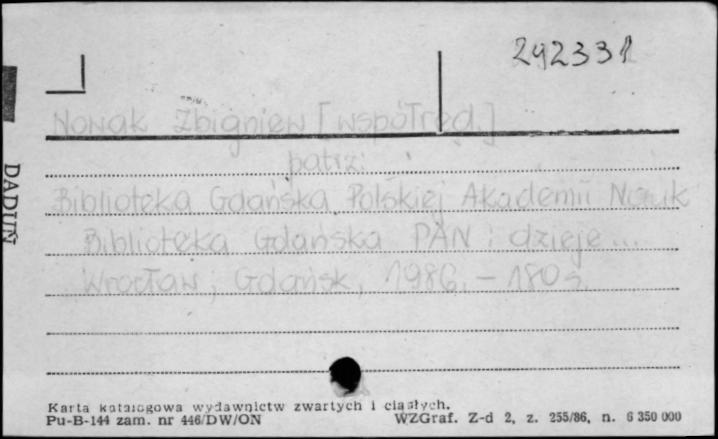 292331
Nowak Zbigniew [współred.]
patrz:
Biblioteka Gdańska Polskiej Akademii Nauk
Biblioteka Gdańska PAN : dzieje...
Wrocław; Gdańsk, 1986. - 180 s.
DADUN
Karta katalogowa wydawnictw zwartych i ciągłych.
Pu-B-144 zam. nr 446/DW/ON WZGraf. Z-d 2, z. 255/86, n. 6 350 000